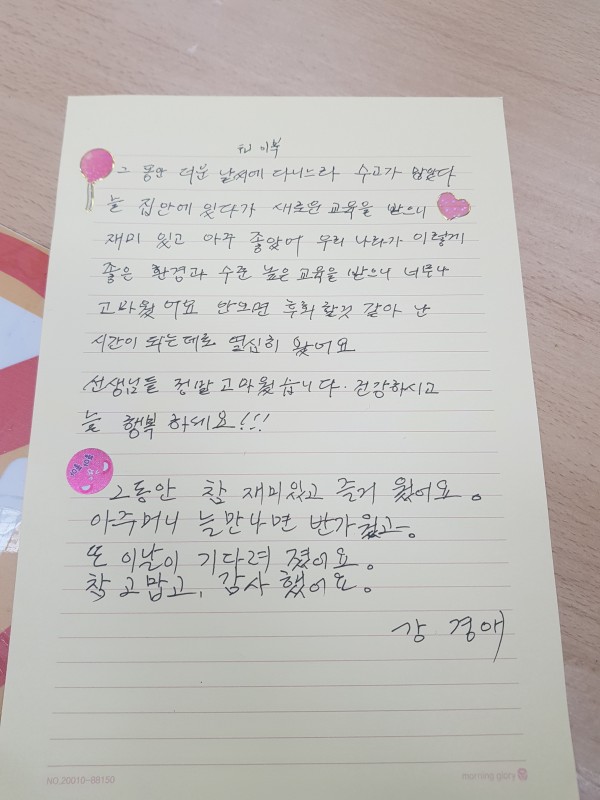 그 동안 더운 날씨에 다니느라 수고가 많았다
늘 집안에 있다가 새로운 교육을 받으니
재미 있고 아주 좋았어 우리 나라가 이렇게
좋은 환경과 수준 높은 교육을 받으니 너무나
고마웠어요 안오면 후회 할것 같아 난
시간이 되는데로 열심히 왔어요
선생님들 정말 고마웠습니다. 건강하시고
늘 행복 하세요!!!
그동안 참 재미있고 즐거 웠어요.
아주머니 늘만나면 반가웠고.
또 이날이 기다려 졌어요.
참 고맙고, 감사 했어요.
강 경애
NO.20010-88150
morning glory